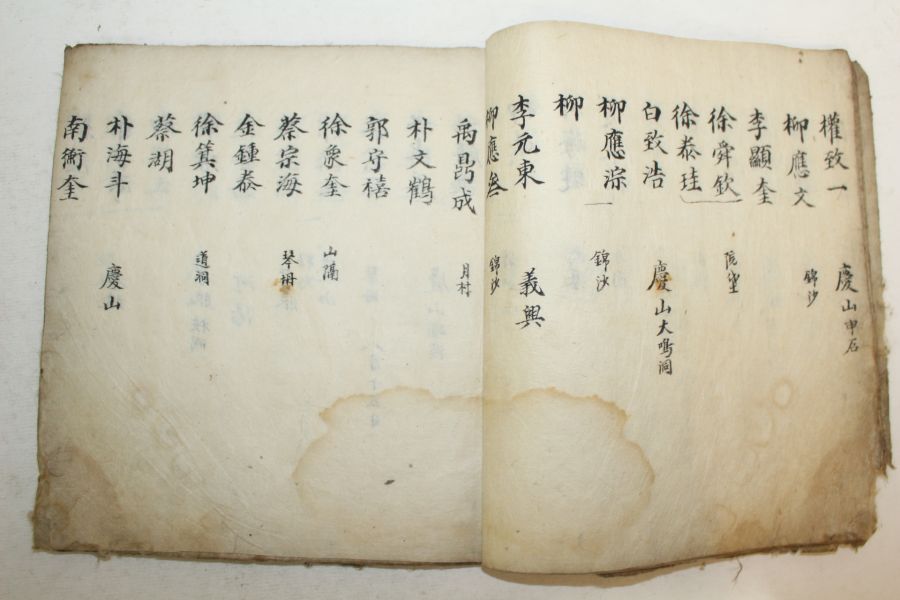 權致一 慶山中石
柳應文 錦沙
李顯奎
徐舜欽
徐泰珪
白致浩 慶山大鳴洞
柳應淙 錦沙
柳
李元東 義興
柳應叁 錦沙
禹昌成 月村
朴文鶴
郭守禧
徐象奎 山隔
蔡宗海 琴
金鍾泰
徐箕坤 道洞
蔡湖
朴海斗 慶山
南衡奎